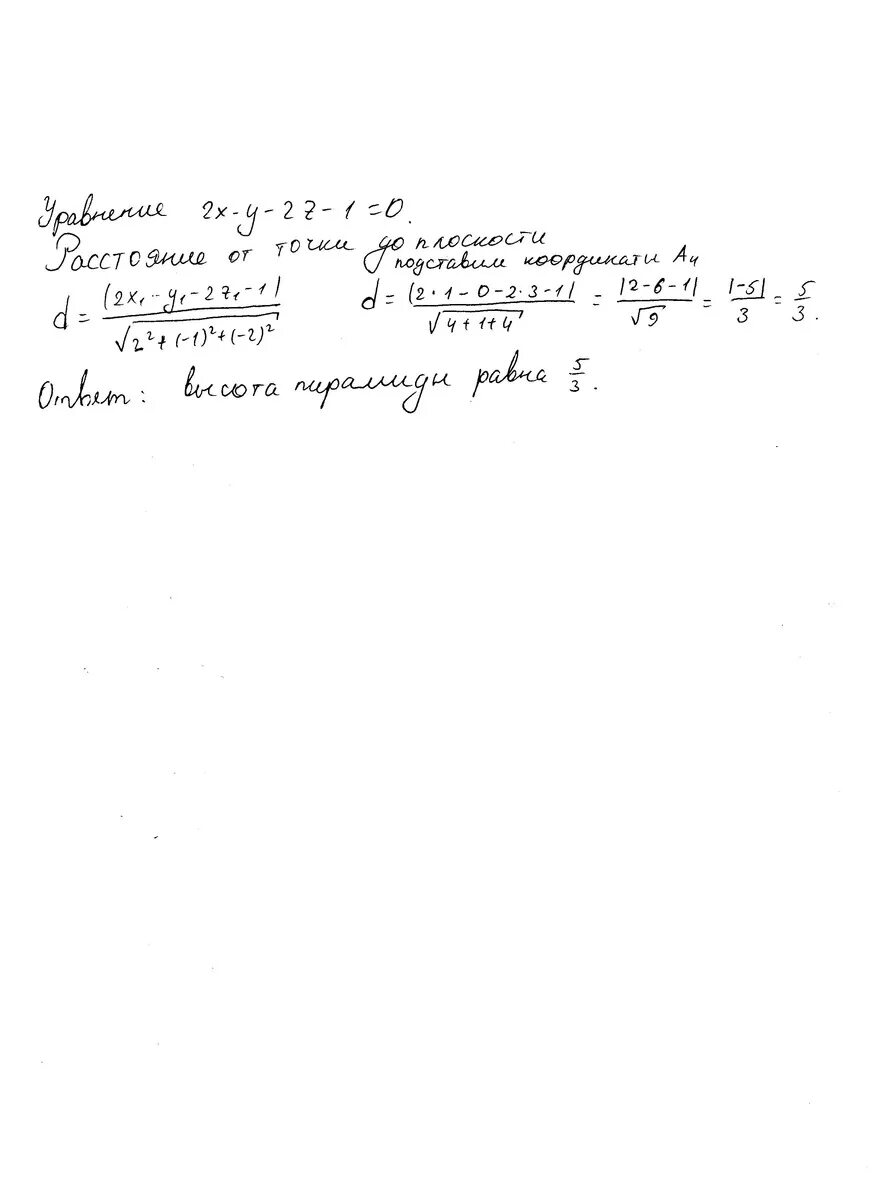 Уравнение 2x-y-2z-1=0.
Расстояние от точки до плоскости
подставим координаты A₄
d = |2x₁-y₁-2z₁-1| / √(2²+(-1)²+(-2)²)
d = |2·1-0-2·3-1| / √(4+1+4) = |2-6-1| / √9 = |-5| / 3 = 5/3.
Ответ: высота пирамиды равна 5/3.